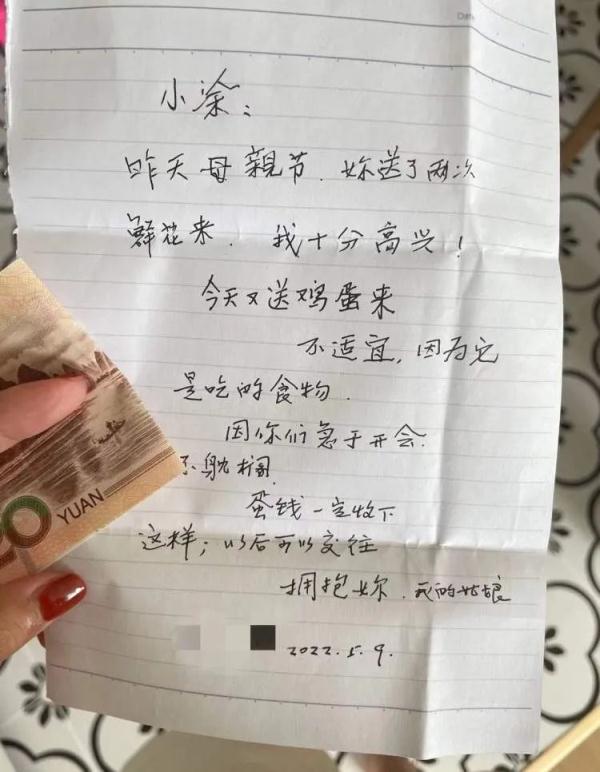 Date
小涂：
昨天母親节，妳送了两次
鲜花来，我十分高兴！
今天又送鸡蛋来
不适宜，因为它
是吃的食物．
因你们急于开会．
不耽搁
蛋钱一定收下
这样；以后可以交往
拥抱妳．我的姑娘
2022．5．9．
20
YUAN